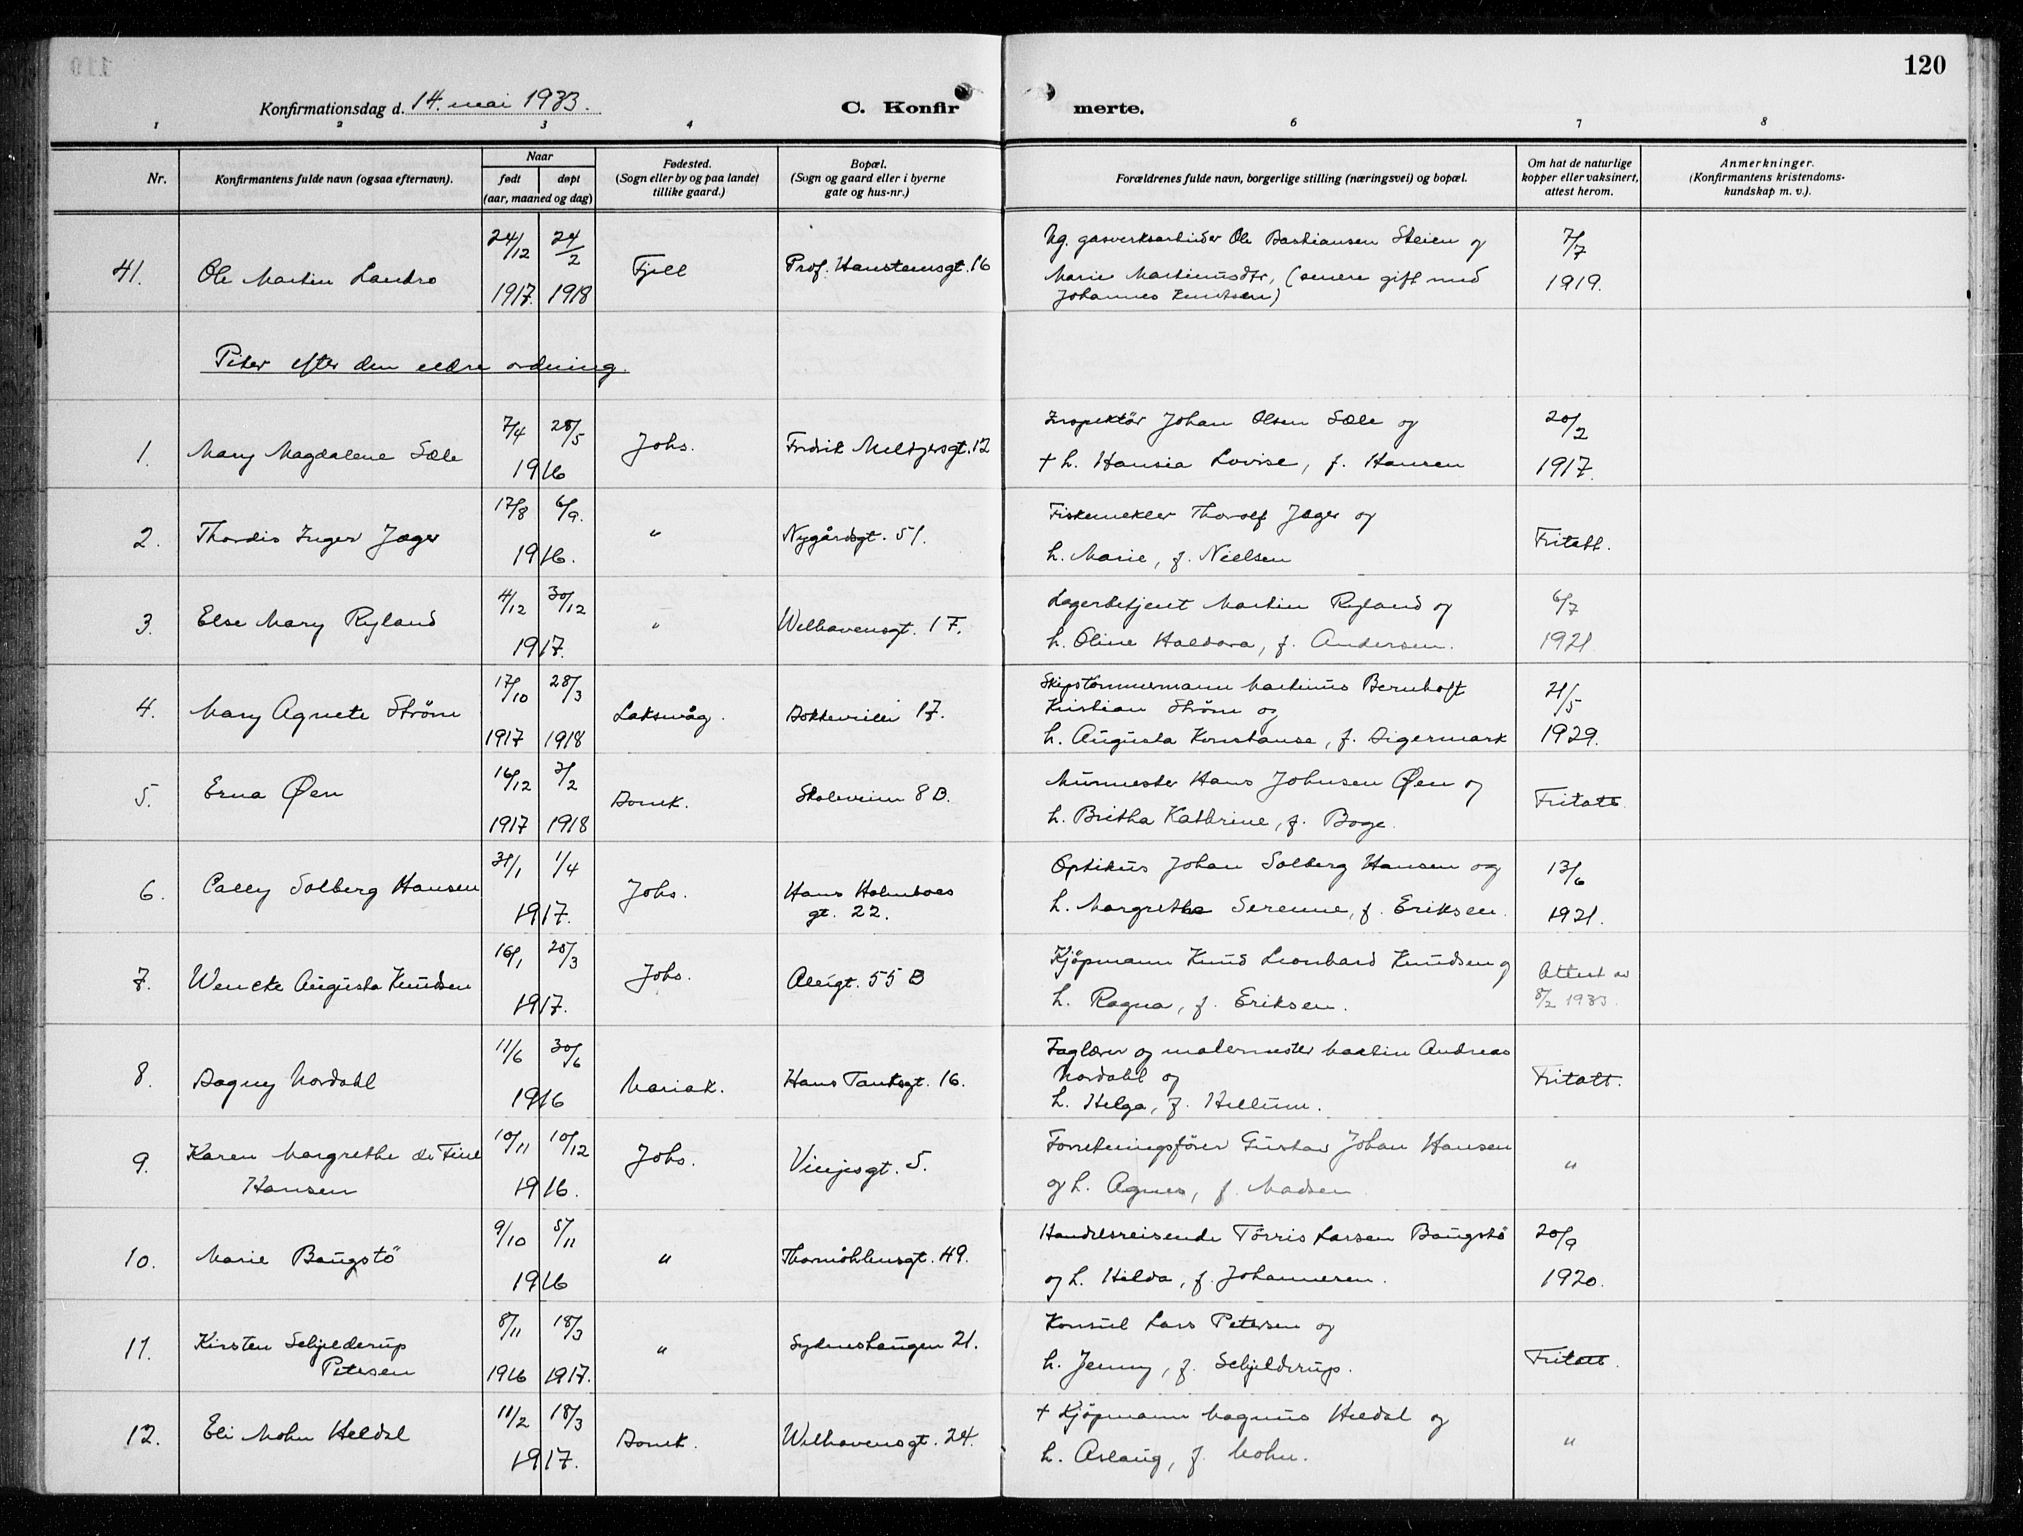 120
Konfirmationsdag d. 14. mai 1933.
C. Konfirmerte.
1 2 3 4 6 7 8
Nr.
Konfirmantens fulde navn (ogsaa efternavn).
Naar
født
døpt
(aar, maaned og dag)
Fødested.
(Sogn eller by og paa landet
tillike gaard.)
Bopæl.
(Sogn og gaard eller i byerne
gate og hus-nr.)
Forældrenes fulde navn, borgerlige stilling (næringsvei) og bopæl.
Om hat de naturlige
kopper eller vaksinert,
attest herom.
Anmerkninger.
(Konfirmantens kristendoms-
kundskap m. v.).
41. Ole Martin Landro 24/12 1917. 24/2 1918 Fjell Prof. Hansteensgt. 16
Ug. gasverksarbeider Ole Bastiansen Steien og
Marie Martinusdtr, (senere gift med
Johannes Knutsen)
7/7 1919.
Piker efter den eldre ordning.
1. Mary Magdalene Sæle 7/4 28/5 1916 Johs. Fredrik Meltzersgt. 12
Inspektør Johan Olsen Sæle og
+ h. Hansia Lovise, f. Hansen
20/2 1917.
2. Thordis Inger Jæger 17/8 6/9. 1916. " Nygårdsgt. 51.
Fiskemekler Thorolf Jæger og
h. Marie, f. Nielsen
Fritatt.
3. Else Mary Ryland 4/12 30/12 1917. " Welhavensgt. 17.
Lagerbetjent Martin Ryland og
h. Oline Haldora, f. Andersen.
6/7 1921
4. Mary Agnete Strøm 17/10 1917 28/3 1918 Laksevåg. Dokkeveien 17.
Skipstømmermann Martinus Bernhoft
Kristian Strøm og
h. Augusta Konstanse, f. Digermark
21/5 1929.
5. Erna Øen 16/12 1917 3/2 1918 Domk. Skoleveien 8 B.
Murmester Hans Johnsen Øen og
h. Britha Kathrine, f. Boge.
Fritatt.
6. Cally Solberg Hansen 31/1 1/4 1917. Johs. Hans Holmboes
gt. 22.
Optikus Johan Solberg Hansen og
h. Margrethe Serenne, f. Eriksen.
13/6 1921.
7. Wencke Augusta Knudsen 16/1 20/3 1917. Johs. Allégt. 55 B
Kjøpmann Knud Leonhard Knudsen og
h. Ragna, f. Eriksen.
Attest av
8/2 1933.
8. Dagny Nordahl 11/6 30/6 1916 Mariak. Hans Tanksgt. 16.
Faglærer og malermester Martin Andreas
Nordahl og
h. Helga, f. Hellum.
Fritatt.
9. Karen Margrethe de Fine
Hansen
10/11 10/12 1916. Johs. Vinjesgt. 5.
Forretningsfører Gustav Johan Hansen
og h. Agnes, f. Madsen
"
10. Marie Baugstö 9/10 5/11 1916 " Thormöhlensgt. 49.
Handelsreisende Tørris Larsen Baugstö
og h. Hilda, f. Johannesen.
20/9 1920.
11. Kirsten Schjelderup
Petersen
8/11 1916 18/3 1917. " Sydneshaugen 21.
Konsul Lars Petersen og
h. Jenny, f. Schjelderup.
Fritatt.
12. Eli Mohn Heldal 11/2 18/3 1917. Domk. Welhavensgt. 24.
+ Kjøpmann Magnus Heldal og
h. Aslaug, f. Mohn.
"